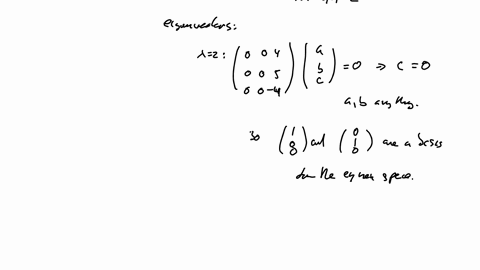 eigenvectors:
λ=2: ( 0 0 4 ) ( a )
( 0 0 5 ) ( b ) = 0 ⇒ c = 0
( 0 0 -4 ) ( c )
a, b anything.
so ( 1 0 0 ) and ( 0 1 0 ) are a basis
for the eigen space.